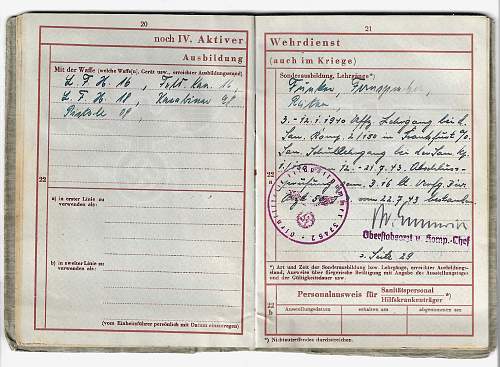 20
noch IV. Aktiver
Ausbildung
Mit der Waffe (welche Waffe(n), Gerät usw., erreichter Ausbildungsstand)
L. F. H. 16, Feld. Kan. 16,
L. F. H. 18, Karabiner 98
Pistole 08,
22
a) in erster Linie zu
verwenden als:
b) in zweiter Linie zu
verwenden als:
(vom Einheitsführer persönlich mit Datum einzutragen)
21
Wehrdienst
(auch im Kriege)
Sonderausbildung, Lehrgänge*)
Funker, Fernsprecher,
3. - 12. 1. 1940 Lehrgang bei d.
San. Komp. 2/150 in Frankfurt /O.
San. Schullehrgang bei der San. Kp.
12. - 21. 7. 43 Abschluss-
prüfung
22. 7. 43 bestanden
22
a
Oberstabsarzt u. Komp.-Chef
s. Seite 29
*) Art und Zeit der Sonderausbildung bzw. Lehrgänge, erreichter Ausbildungs-
stand, Ausweise über fliegerische Betätigung mit Angabe des Ausstellungstages
und der Gültigkeitsdauer usw.
Personalausweis für Sanitätspersonal *)
Hilfskrankenträger
22
b
Ausweisnummer
erhalten am
abgenommen am
*) Nichtzutreffendes durchstreichen.